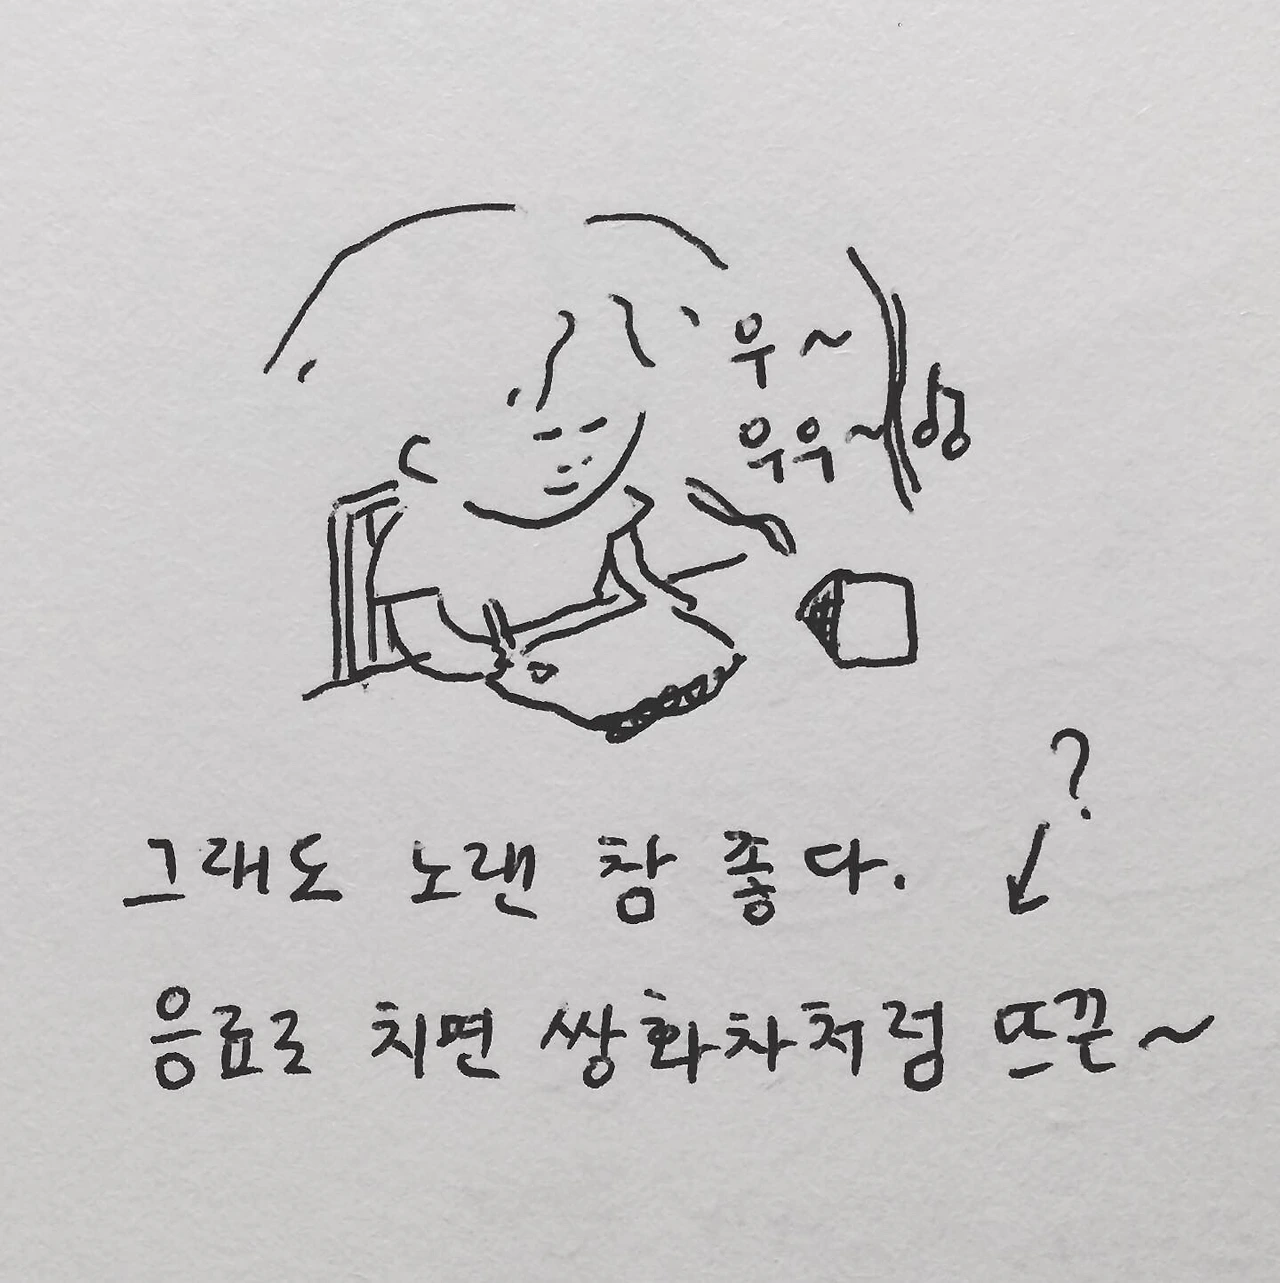 우~
우우~
?
그래도 노랜 참 좋다.
음료로 치면 쌍화차처럼 뜨끈~